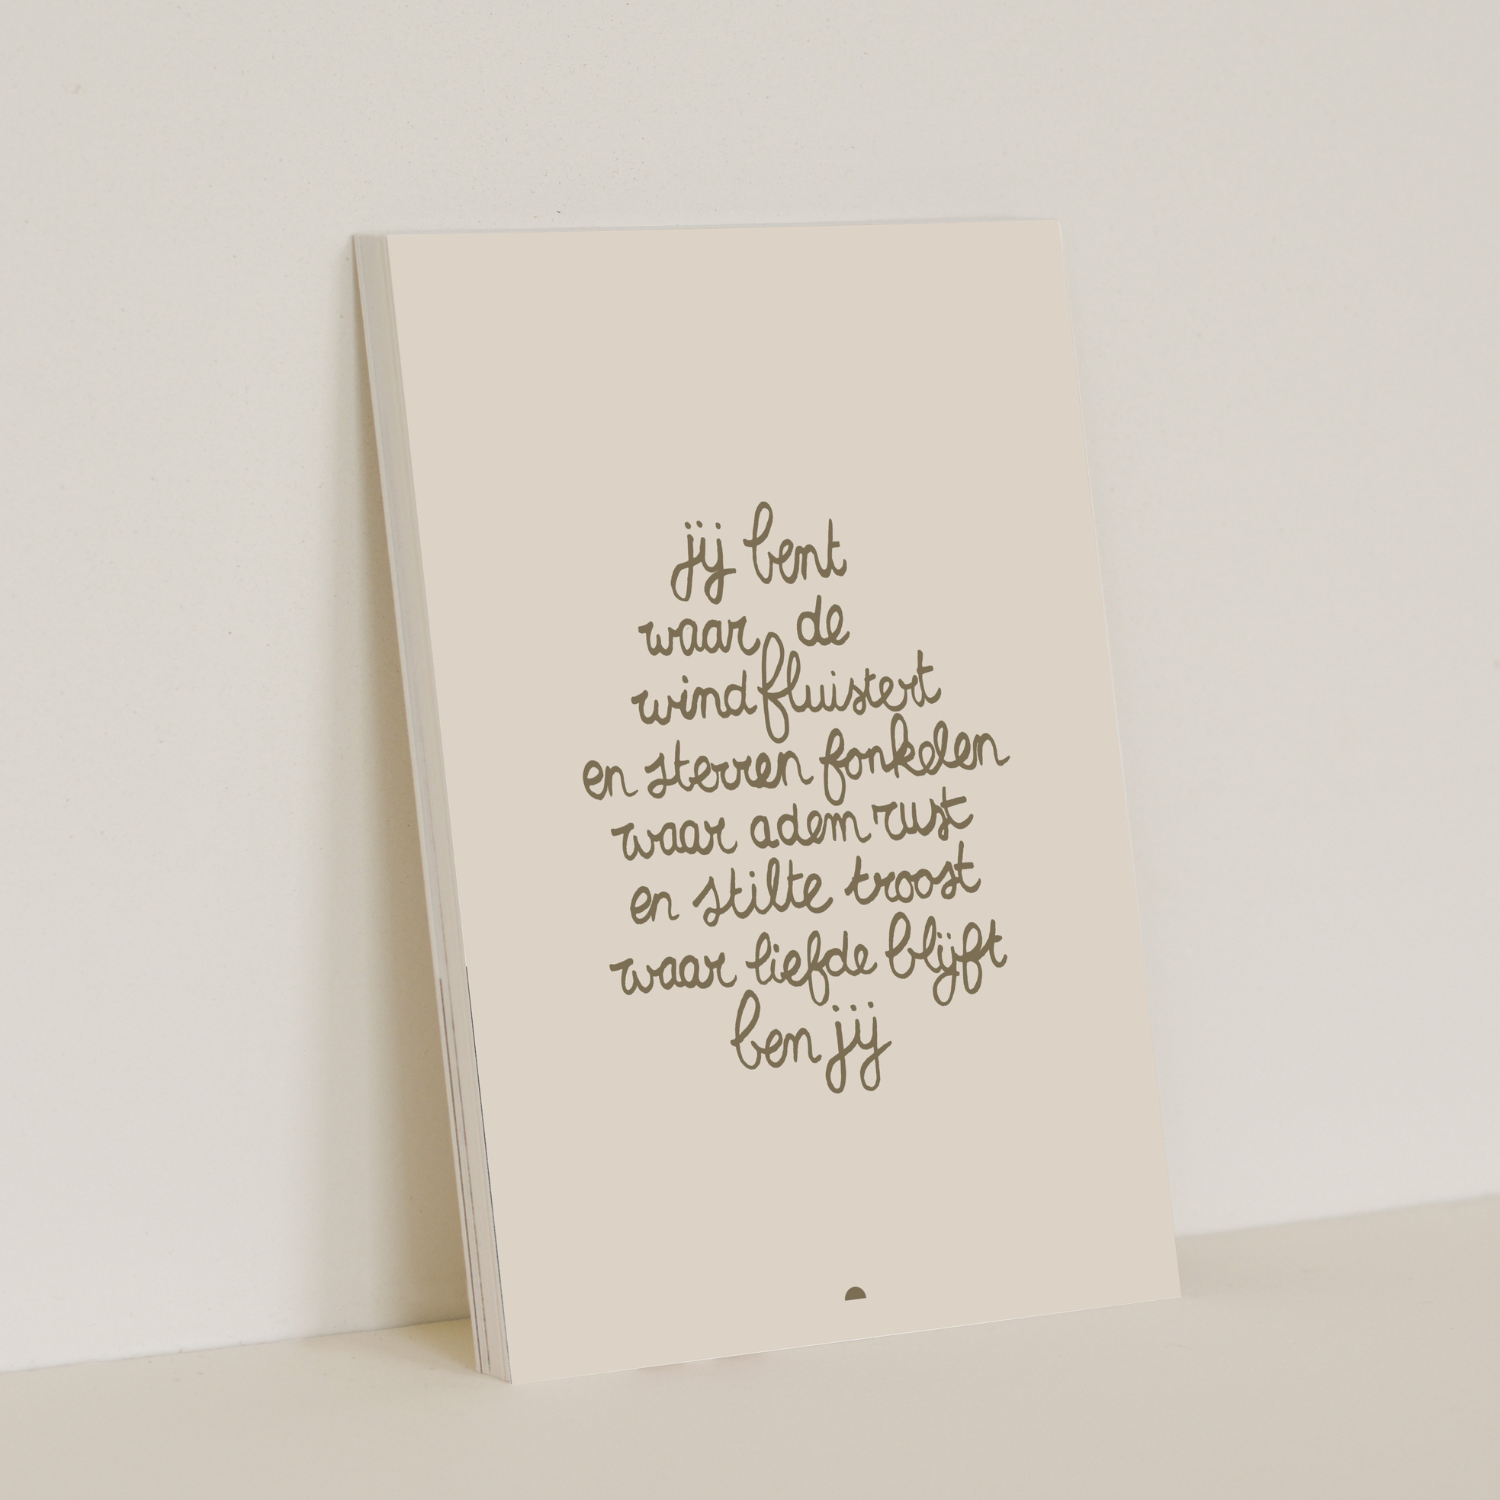 jij bent
waar de
wind fluistert
en sterren fonkelen
waar adem rust
en stilte troost
waar liefde blijft
ben jij